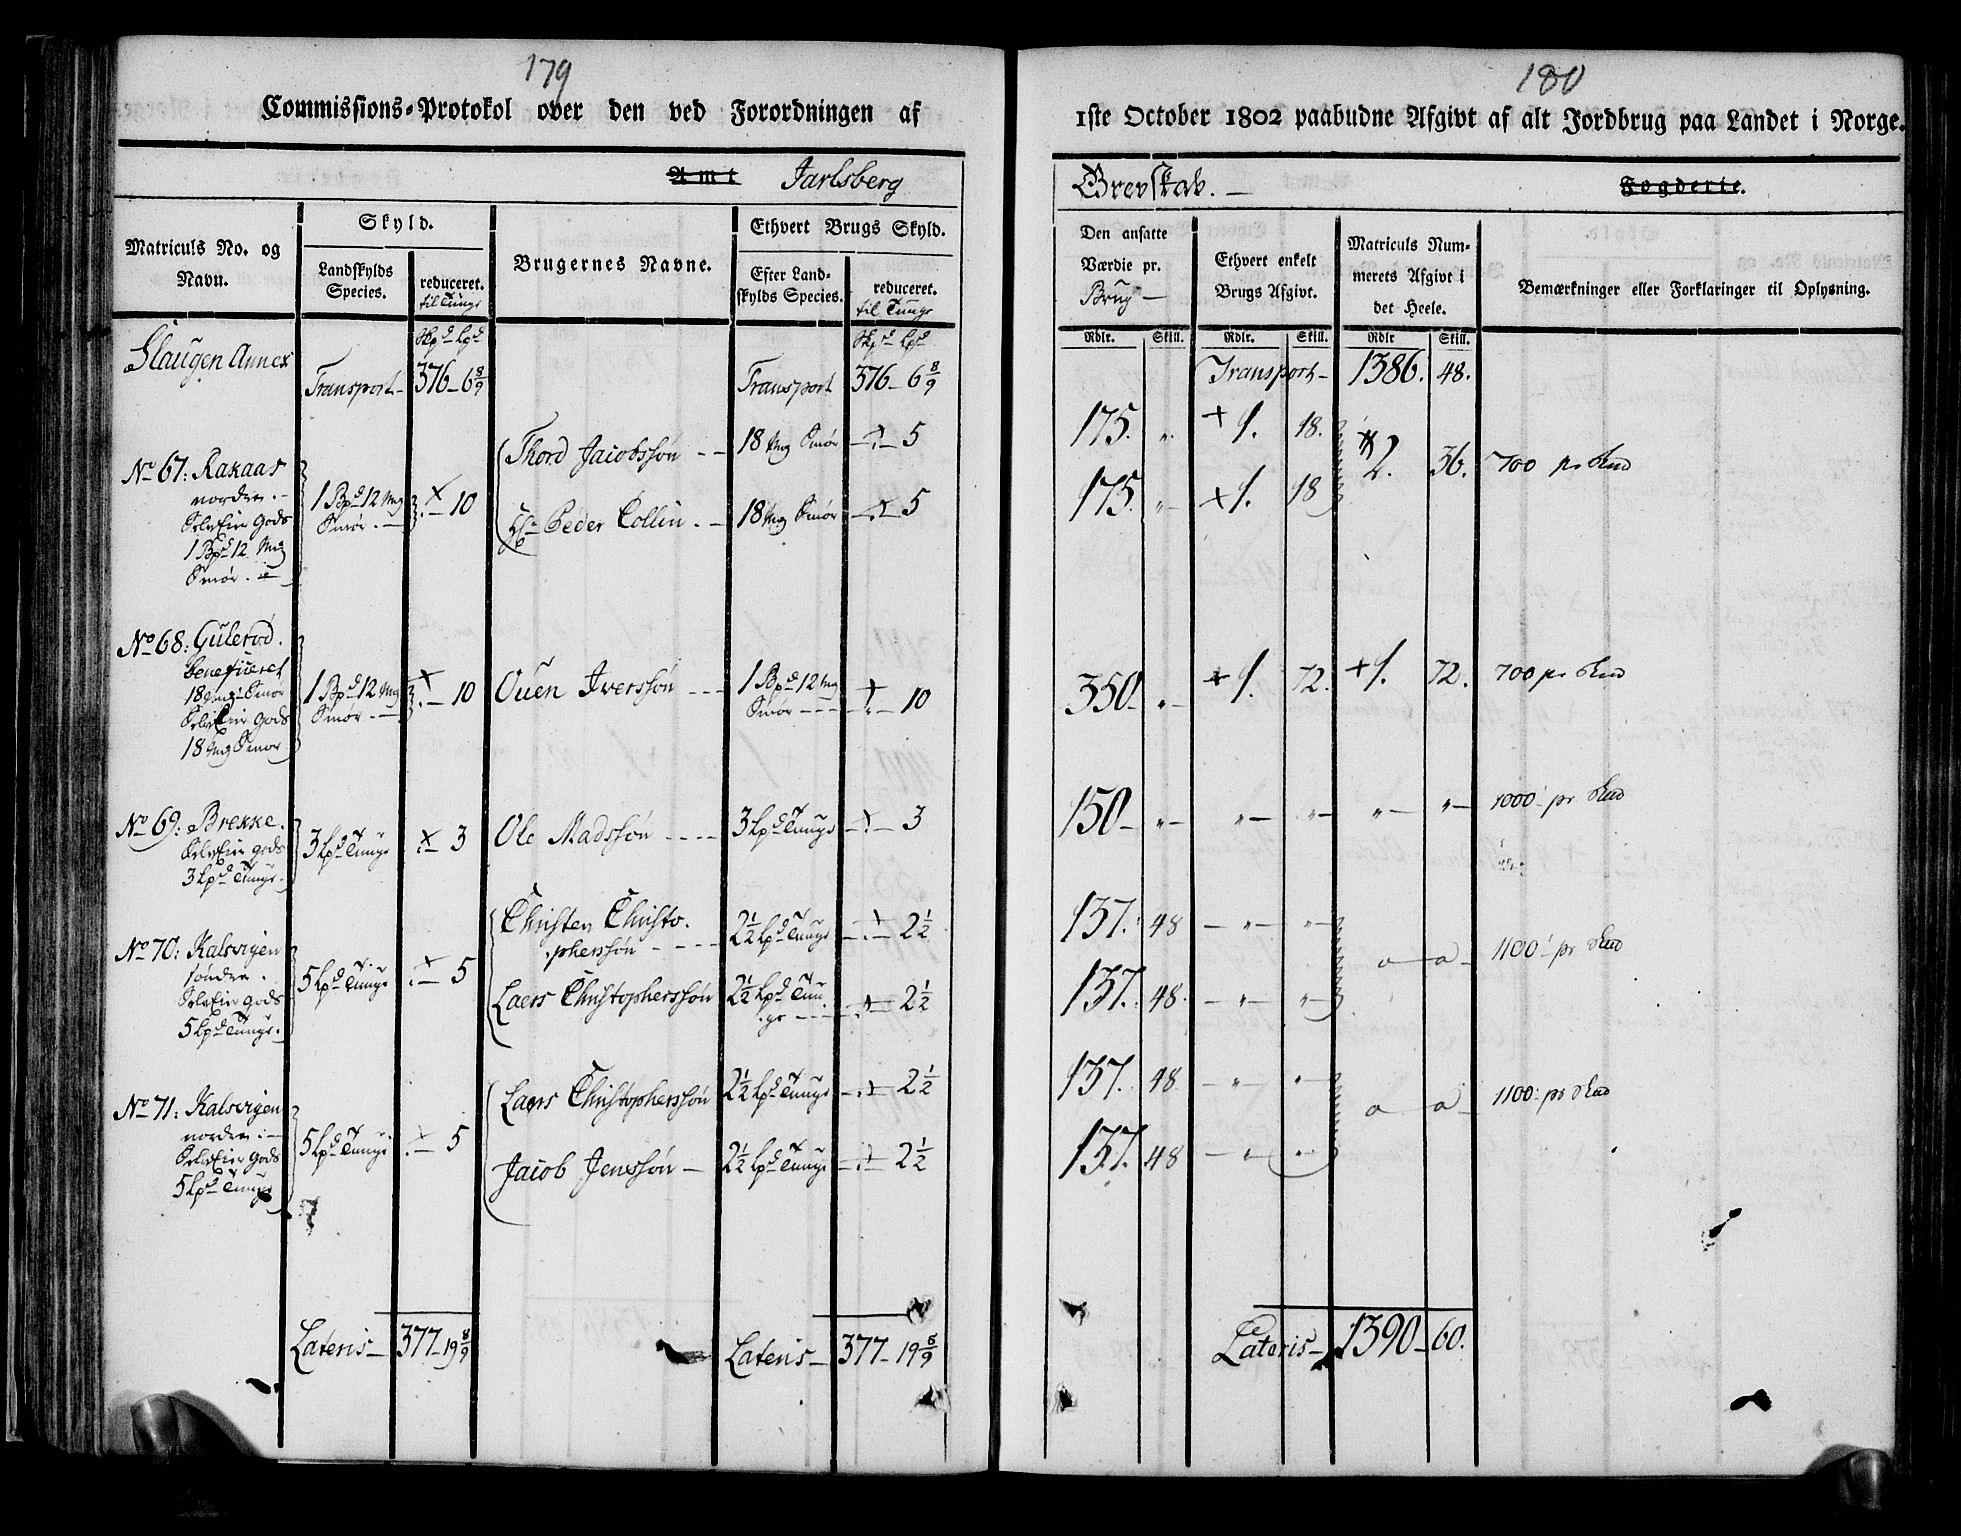 179
Commissions-Protokol over den ved Forordningen af
Amt Jarlsberg
Matriculs No. og
Navn.
Skyld.
Landskylds
Species.
reduceret.
til Tunge
Brugernes Navne.
Ethvert Brugs Skyld.
Efter Land-
skylds Species.
reduceret.
til Tunge
Slaugen Annex
Skpd Lpd
Skpd Lpd
Transport 376 - 6 8/9
Transport 376 - 6 8/9
No 67: Rakaas
nordre.
SelvEier Gods
1 Bpd 12 Mg
Smør.
1 Bpd 12 Mg
Smør.
10
Thord Jacobssøn
18 Mg Smør
5
Peder Collin.
18 Mg Smør
5
No 68: Gulerød.
Beneficeret
18 Mg Smør
SelvEier Gods
18 Mg Smør
1 Bpd 12 Mg
Smør.
10
Ouen Iverssøn
1 Bpd 12 Mg
Smør
10
No 69: Brekke.
SelvEier Gods
3 Lpd Tunge.
3 Lpd Tunge
3
Ole Madssøn
3 Lpd Tunge
3
No 70: Kalsvigen
søndre.
SelvEier Gods
5 Lpd Tunge.
5 Lpd Tunge
5
Christen Christo-
pherssøn
2 1/2 Lpd Tunge
2 1/2
Laers Christopherssøn
2 1/2 Lpd Tun
ge
2 1/2
No 71: Kalsvigen
nordre
SelvEier Gods
5 Lpd Tunge
5 Lpd Tunge
5
Laers Christopherssøn
2 1/2 Lpd Tunge
2 1/2
Jacob Jenssøn
2 1/2 Lpd Tunge
2 1/2
Lateris 377 - 19 8/9
Lateris 377 - 19 8/9
180
1ste October 1802 paabudne Afgivt af alt Jordbrug paa Landet i Norge.
Grevskab.
Fogderie.
Den ansatte
Værdie pr.
Brug
Ethvert enkelt
Brugs Afgivt.
Matriculs Num-
merets Afgivt i
det Heele.
Bemærkninger eller Forklaringer til Oplysning.
Rdlr. Skill. Rdlr. Skill. Rdlr Skill.
Transport 1386. 48.
175. „ 1. 18.
2. 36. 700 pr Skud
175. „ 1. 18
350 „ 1. 72. 1. 72. 700 pr Skud
150 „ „ „ „ „ 1000 pr Skud
137. 48 „ „
o o 1100 pr Skud
137. 48. „ „
137. 48 „ „
o o 1100 pr Skud
137. 48 „ „
Lateris 1390 60.